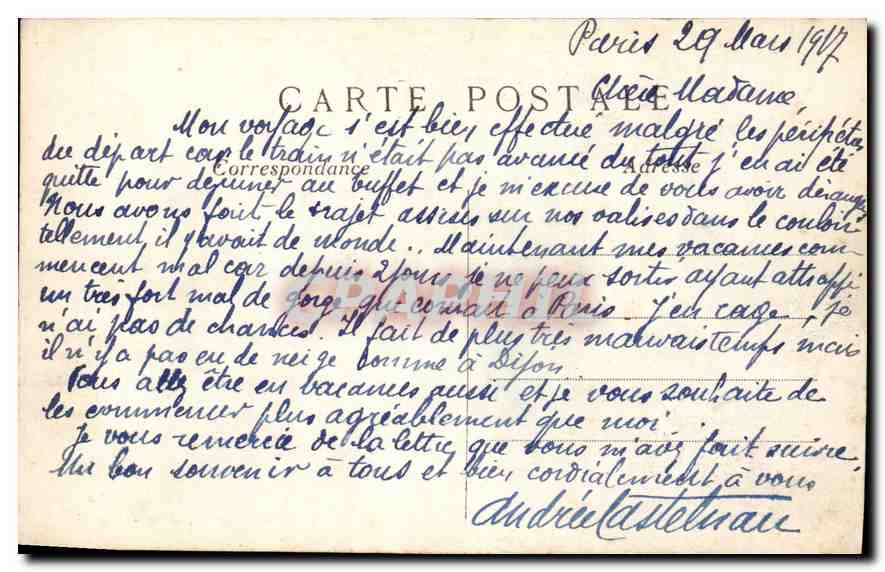 Paris 29 Mars 1917
CARTE POSTALE
Chère Madame,
Mon voyage s'est bien effectué malgré les péripéties
du départ car le train n'était pas avancé du tout j'en ai été
Correspondance
Adresse
quitte pour déjeuner au buffet et je m'excuse de vous avoir dérangé
Nous avons fait le trajet assises sur nos valises dans le couloir
tellement il y avait de monde.. Maintenant mes vacances com-
mencent mal car depuis 2 jours je ne peux sortir ayant attrappé
un très fort mal de gorge que courait à Paris. J'en rage, je
n'ai pas de chances. Il fait de plus très mauvais temps mais
il n'y a pas eu de neige comme à Dijon.
Vous allez être en vacances aussi et je vous souhaite de
les commencer plus agréablement que moi.
Je vous remercie de la lettre que vous m'avez fait suivre.
Un bon souvenir à tous et bien cordialement à vous
Andrée Castelnau